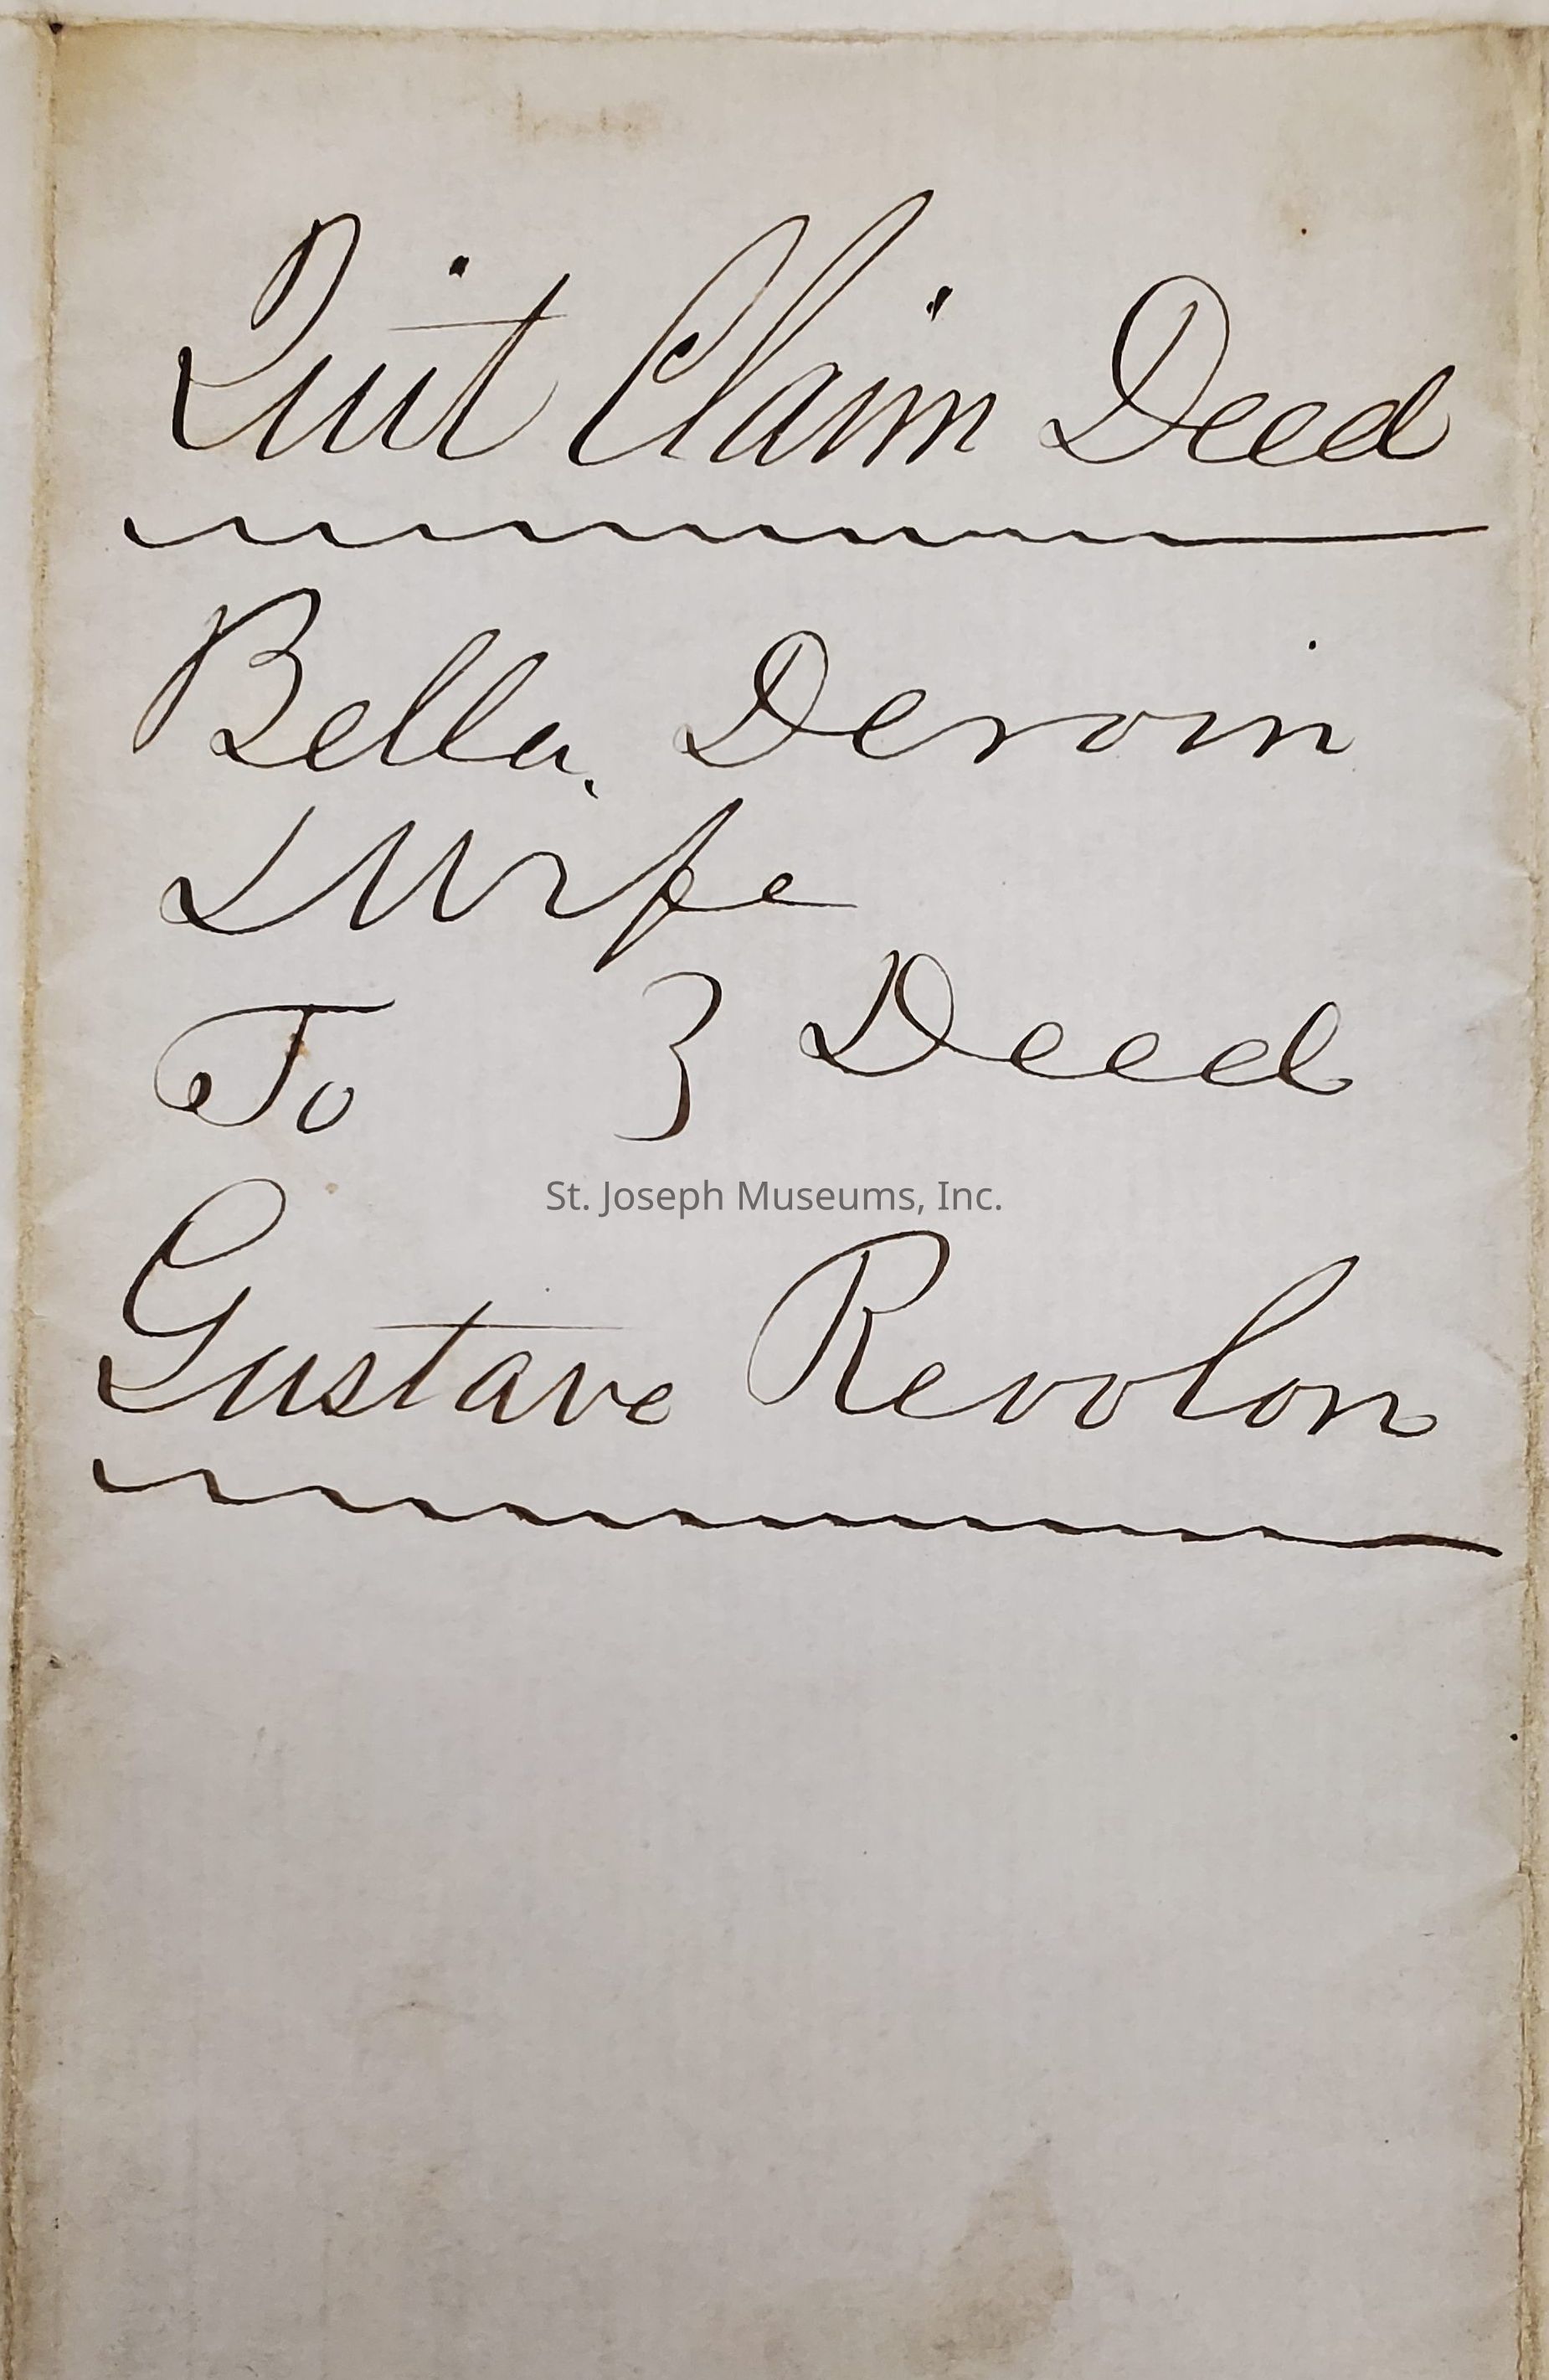 Quit Claim Deed
Bella. Deroin
& Wife
To } Deed
St. Joseph Museums, Inc.
Gustave Revolon